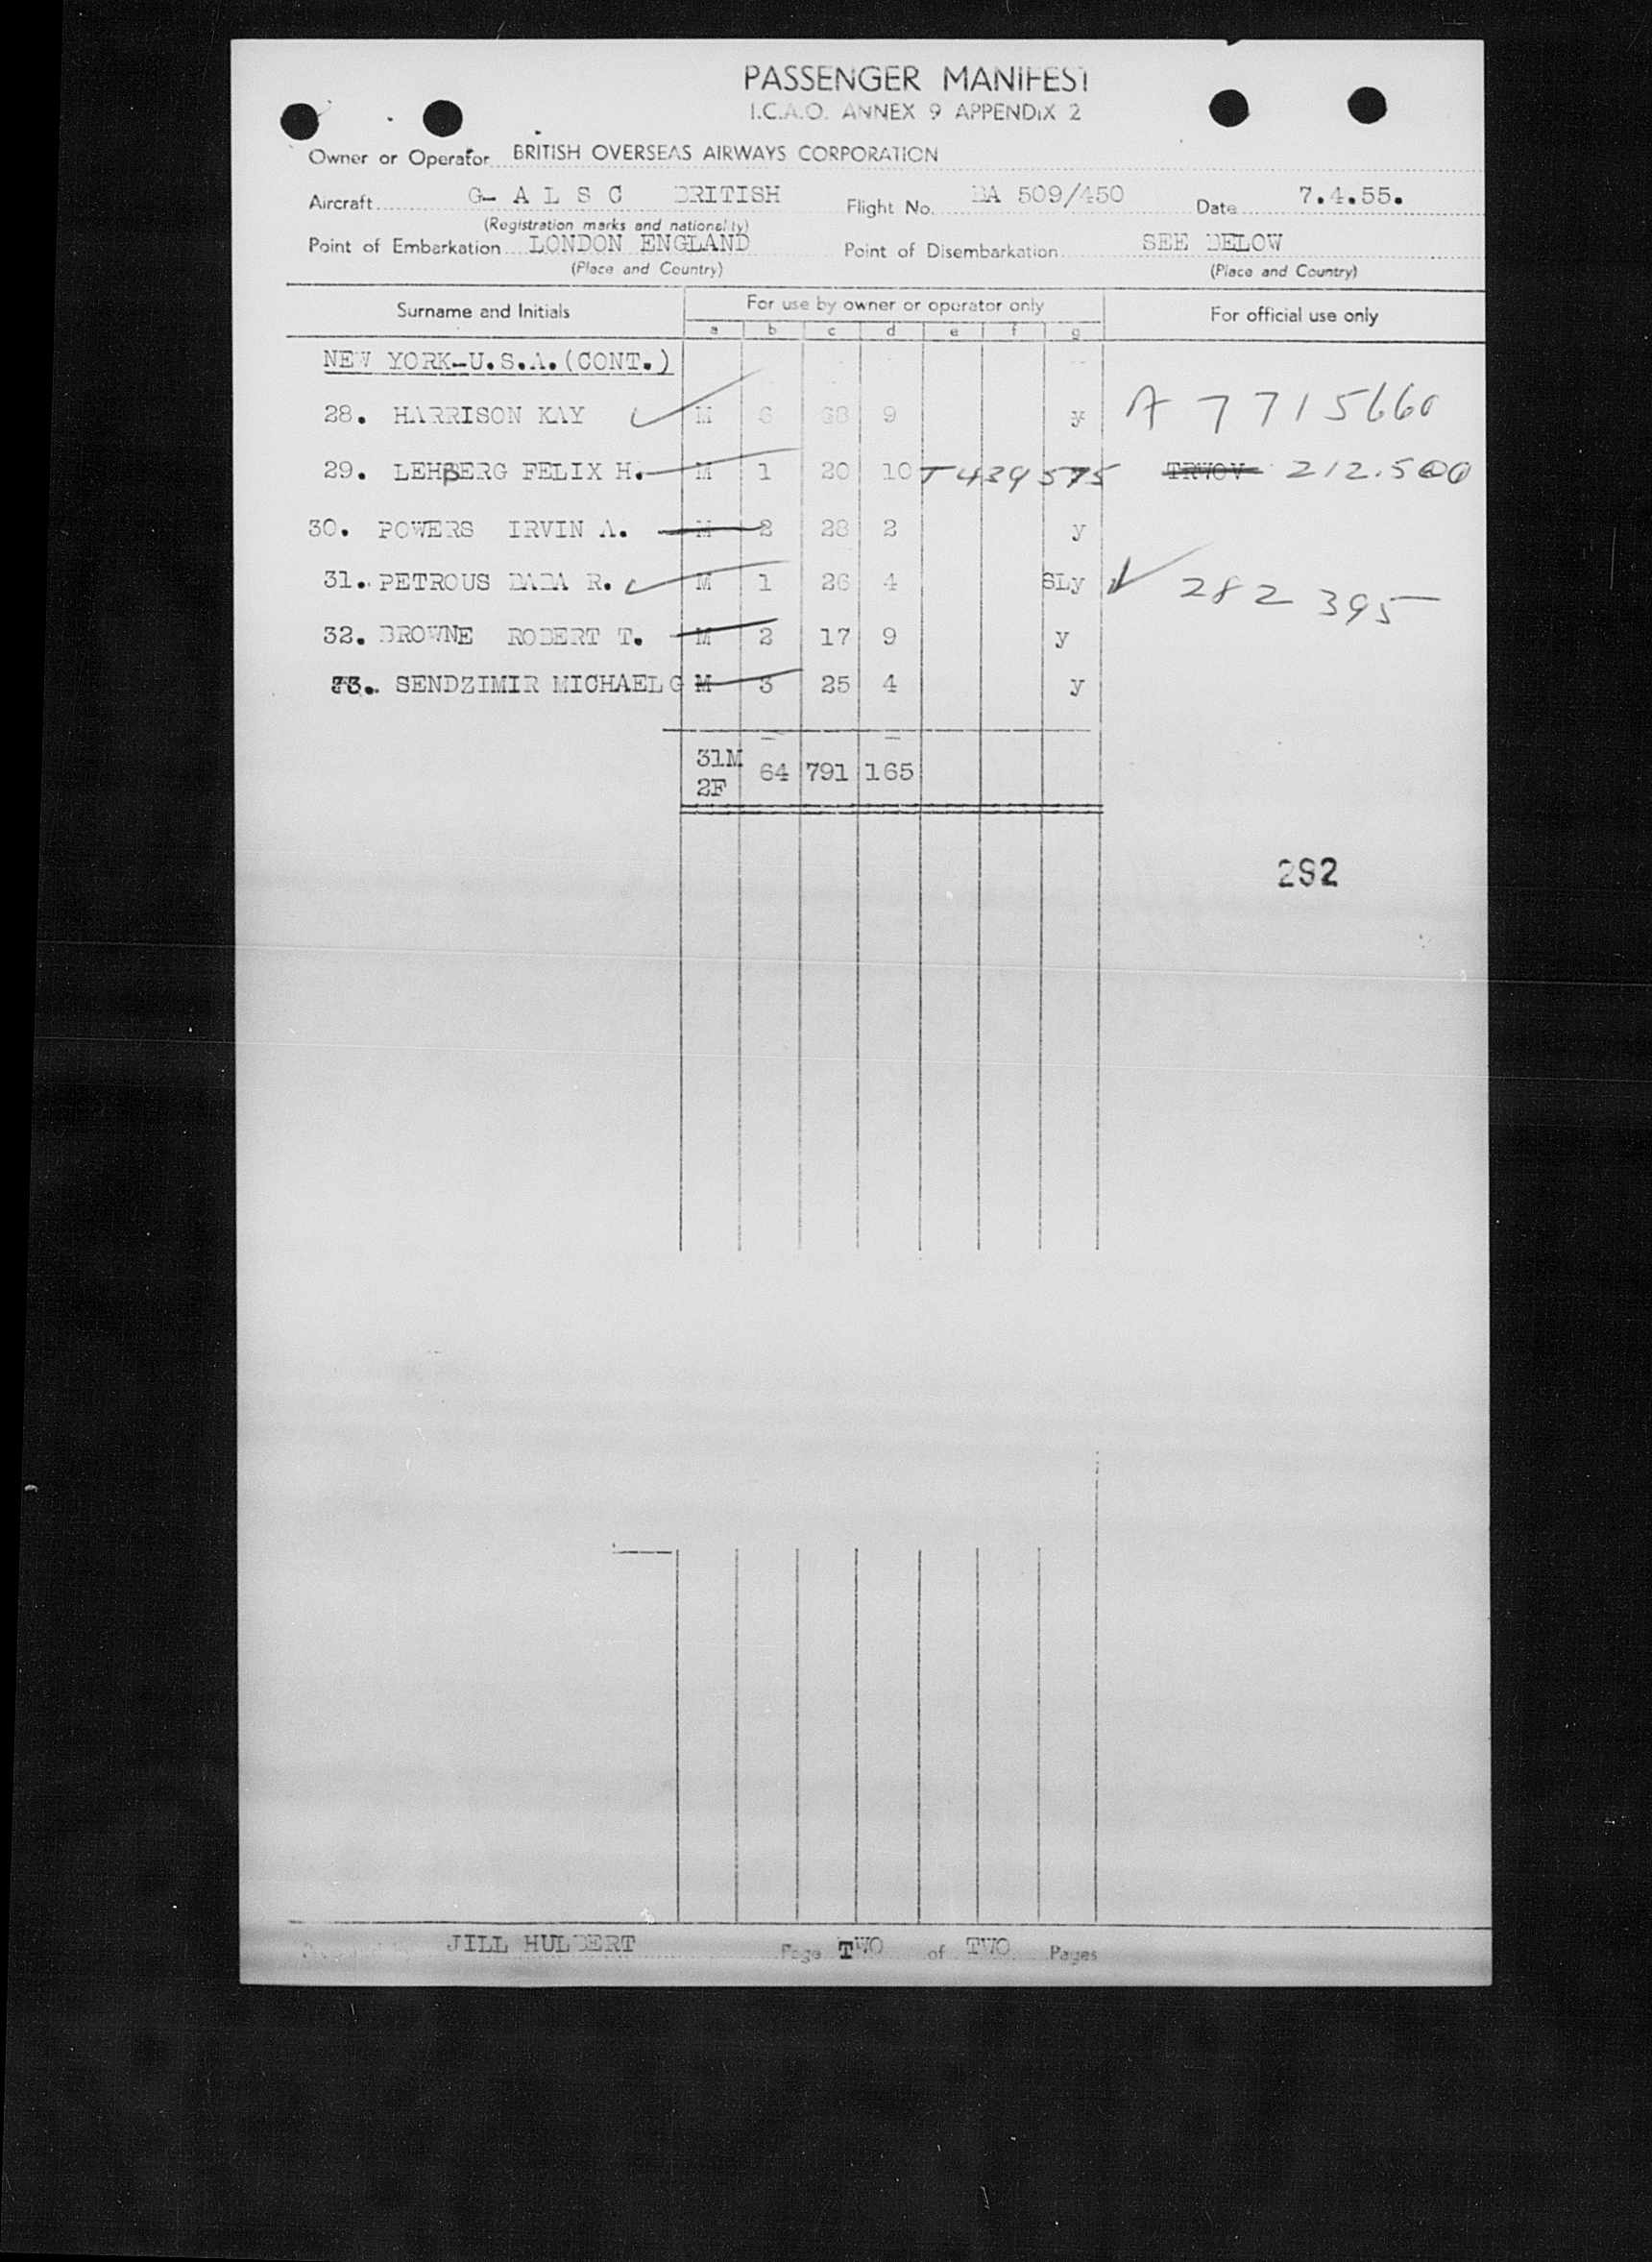 PASSENGER MANIFEST
I.C.A.O. ANNEX 9 APPENDIX 2
Owner or Operator BRITISH OVERSEAS AIRWAYS CORPORATION
Aircraft G- A L S C BRITISH Flight No. BA 509/450 Date 7.4.55.
(Registration marks and nationality)
Point of Embarkation LONDON ENGLAND Point of Disembarkation SEE BELOW
(Place and Country) (Place and Country)
Surname and Initials For use by owner or operator only For official use only
a b c d e f g
NEW YORK-U.S.A.(CONT.)
28. HARRISON KAY M 6 68 9 y A 7715660
29. LEHBERG FELIX H. M 1 20 10 T439575 212.500
30. POWERS IRVIN A. M 2 28 2 y
31. PETROUS DADA R. M 1 26 4 SLy 282395
32. BROWNE ROBERT T. M 2 17 9 y
33. SENDZIMIR MICHAEL G M 3 25 4 y
31M 64 791 165
2F
292
JILL HULBERT Page TWO of TWO Pages